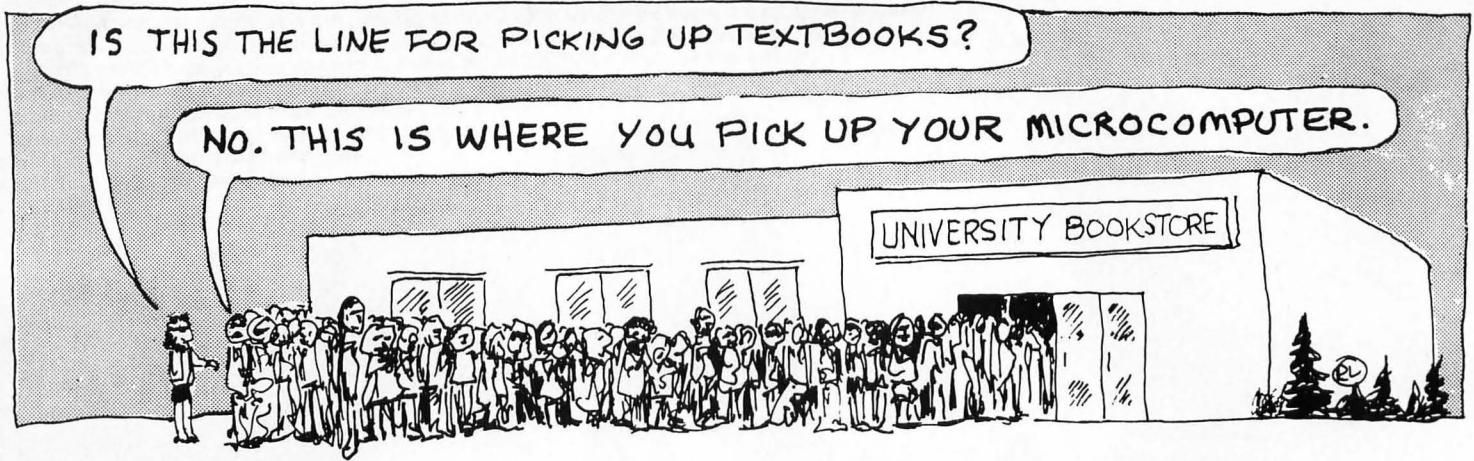 IS THIS THE LINE FOR PICKING UP TEXTBOOKS?
NO. THIS IS WHERE YOU PICK UP YOUR MICROCOMPUTER.
UNIVERSITY BOOKSTORE
RL